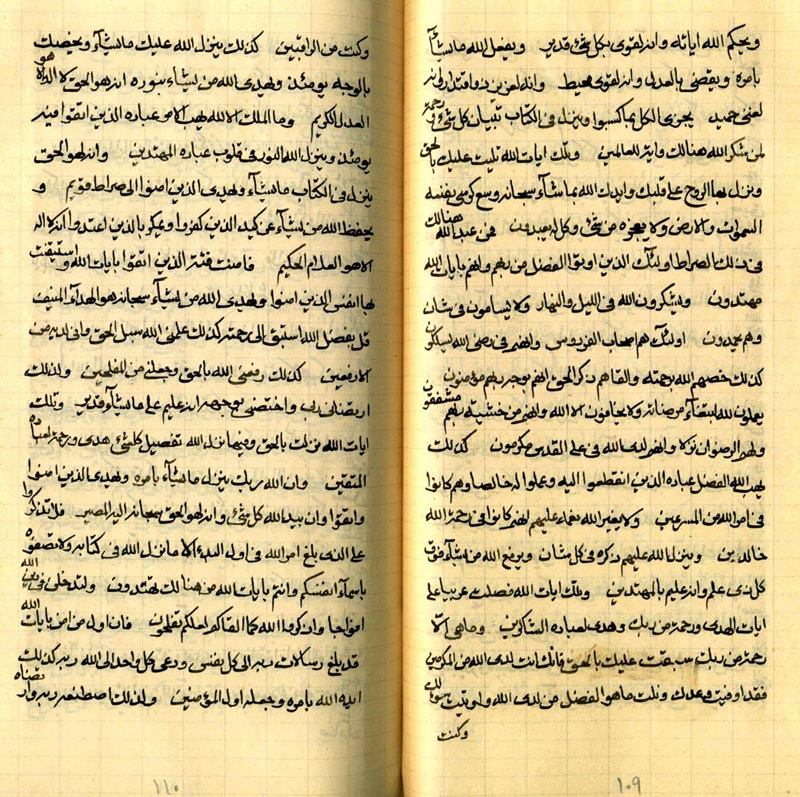 ويحكم الله اياته وانه لقوى بكل شئ قدير ويفعل الله ما يشآء
بامره ويقضى بالعدل وانه لقوى محيط وانه لعزيز ذو اقتدار وانه
لغنى حميد يجزى الكل بما كسبوا وينزل فى الكتاب تبيان كل شئ ورحمة
لمن شكر الله هنالك واية للعالمين وتلك ايات الله تليت عليك بالحق
وينزل بها الروح على قلبك وايدك الله بما شآء سبحانه وسع كرسى
السموات والارض ولا يعجزه من شئ وكل له يعبدون فمن عبد الله هنالك
فى ذلك الصراط اولئك الذين اوتوا الفضل من ربهم وانهم بايات الله
مهتدون ويشكرون الله فى الليل والنهار ولا يسامون فى شان
وهم يحمدون اولئك هم اصحاب الفردوس وانهم فى رضى الله ليسلكون
كذلك خصهم الله برحمته والقاهم ذكر الحق انهم بوجه ربهم مؤمنون
يعملون لله ابتغآء مرضاته ولا يخافون الا الله وانهم من خشية ربهم مشفقون
ولهم الرضوان نزلا وانهم لدى الله فى على القدس مكرمون كذلك
يهب الله الفضل عباده الذين انقطعوا اليه وعملوا له خالصا وهم كانوا
فى امر الله من المسرعين ولا يغير الله نعمة عليهم انهم كانوا فى رحمة الله
خالدين وينزل الله عليهم ذكره فى كل شان ويرفع الله من يشآء فوق
كل ذى علم وانه عليم بالمهتدين وتلك ايات الله فصلت عربيا على
ايات الهدى ورحمة من ربك وهدى لعباده الشاكرين وما هى الا
رحمة من ربك سبقت عليك بالحق فانك انت لدى الله من المكرمين
فقد اوفيت وعدك ونلت ما هو الفضل من لدى الله واوتيت
وكنت
١٠٩
وكنت من الراقبين كذلك ينزل الله عليك ما يشآء ويخصك
بالوجه يومئذ ويهدى الله من يشآء بنوره انه هو الحق لا اله الا هو
العدل الكريم وما الملك الا لله يهب الامر عباده الذين اتقوا
يومئذ وينزل الله النور فى قلوب عباده المهتدين وانه لهو الحق
ينزل فى الكتاب ما يشآء ويهدى الذين امنوا الى صراط قويم و
يحفظ الله من يشآء عن كيد الذين كفروا ويمكر بالذين اعتدوا انه لا اله
الا هو العلام الحكيم فامنت فئة الذين اتقوا بايات الله واستيقنت
بها انفس الذين امنوا ويهدى الله من يشآء سبحانه هو الهداء المنيف
قل بفضل الله استبق الى رحمته كذلك علمنى الله سبل الحق وانى لديه من
الارفعين كذلك رفعنى الله بالحق وجعلنى من المفلحين وكذلك
ارتضانى ربى واختصنى بوجهه انه عليم على ما يشآء قدير وتلك
ايات الله نزلت بالحق وفيها نزل الله تفصيل كل شئ هدى ورحمة لعباده
المتقين وان الله ربك ينزل ما يشآء بامره ويهدى الذين امنوا
واتقوا وان بيد الله كل شئ وانه لهو الحق سبحانه اليه المصير فلا تذكروا
على الذى بلغ امر الله فى اول البدء الا ما نزل الله فى كتابه ولا تصفوه
باسمآء انفسكم وانتم بايات الله من هنالك تهتدون ولتدخلن فى دين الله
افواجا وان كروا الله كما القاكم لعلكم تفلحون فان اول من امن بايات الله
قد بلغ رسالات ربه الى كل نفس ودعى كل واحد الى الله ربه كذلك
ايده الله بامره وجعله اول المؤمنين وكذلك اصطنعه ربه
١١٠